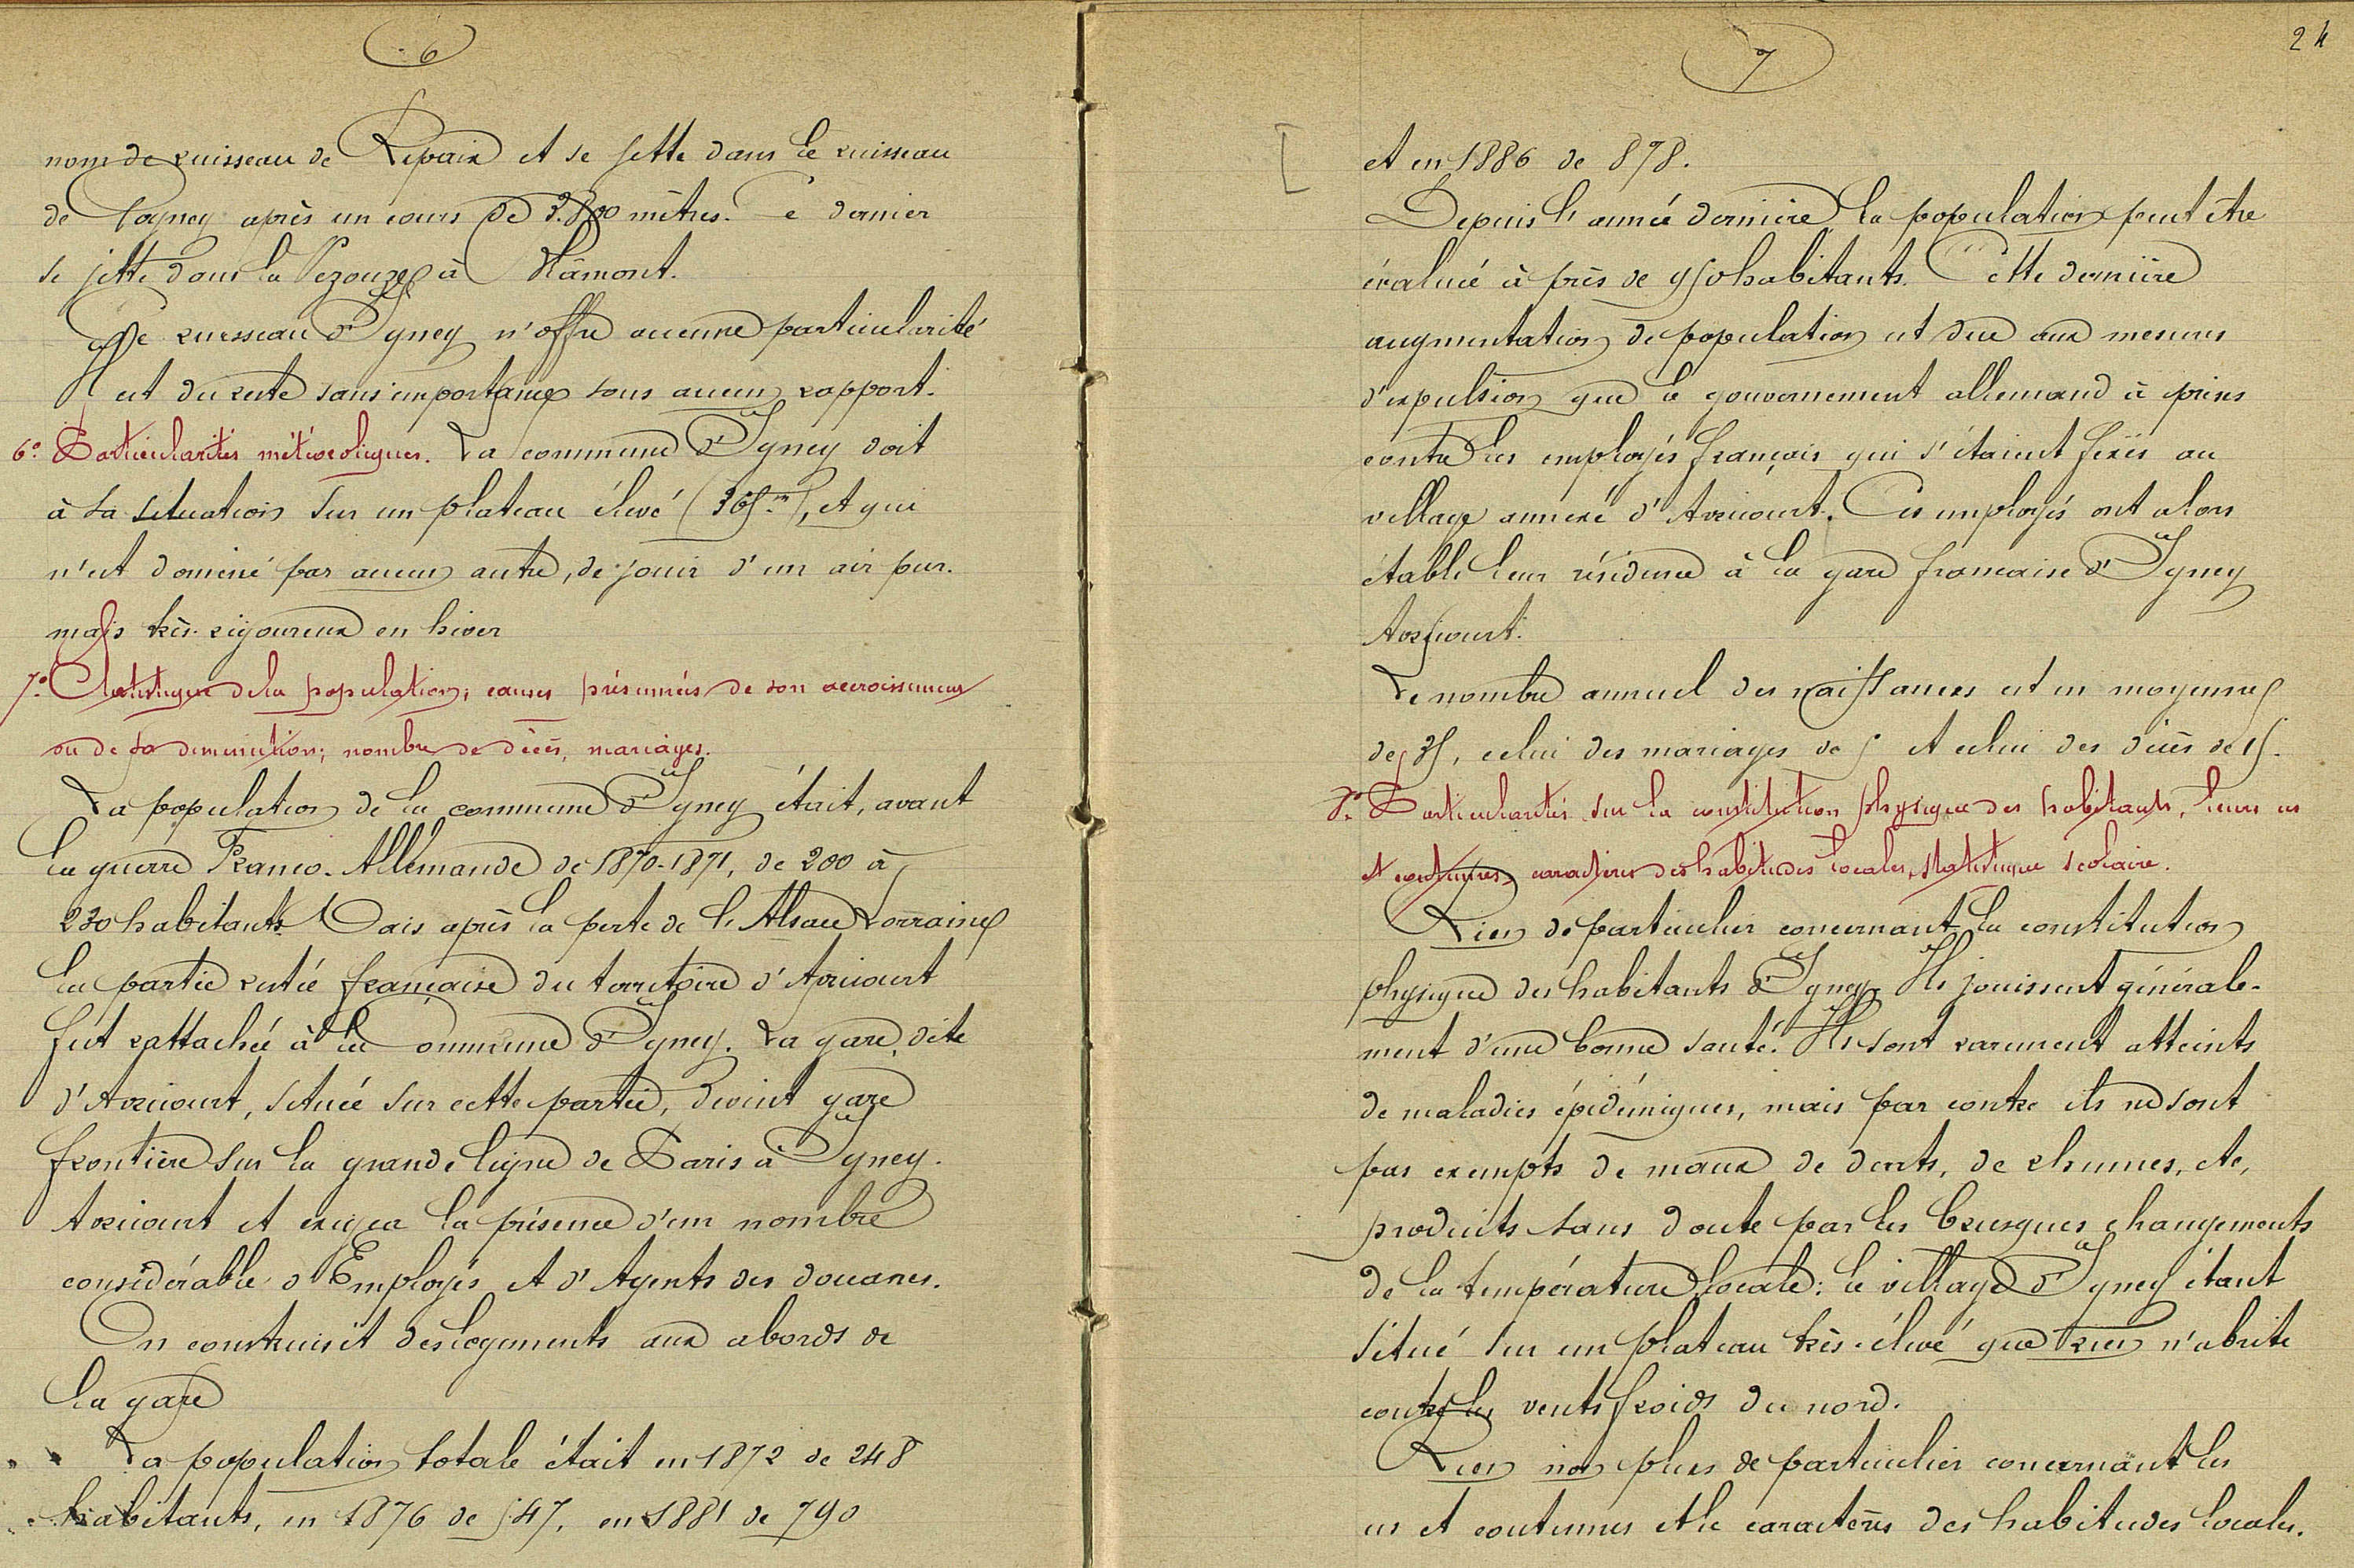 6
nom de ruisseau de Repaix et se jette dans le ruisseau
de Foyney après un cours de 2.800 mètres. Ce dernier
se jette dans la Vezouze à Blâmont.
Le ruisseau d'Igney n'offre aucune particularité
Il est du reste sans importance sous aucun rapport.
6° Particularités météorologiques. La commune d'Igney doit
à sa situation sur un plateau élevé (365m), et qui
n'est dominé par aucun autre, de jouir d'un air pur.
mais très-rigoureux en hiver
7° Statistique de la population; causes présumées de son accroissement
ou de sa diminution; nombre de décès, mariages.
La population de la commune d'Igney était, avant
la guerre Franco-Allemande de 1870-1871, de 200 à
230 habitants. Mais après la perte de l'Alsace Lorraine
la partie restée française du territoire d'Avricourt
fut rattachée à la Commune d'Igney. La gare, dite
d'Avricourt, située sur cette partie, devint gare
frontière sur la grande ligne de Paris à Igney.
Avricourt et exigea la présence d'un nombre
considérable d'Employés et d'Agents des douanes.
On construisit des logements aux abords de
la gare
La population totale était en 1872 de 248
habitants, en 1876 de 547, en 1881 de 790
7
24
et en 1886 de 878.
Depuis l'année dernière la population peut être
évaluée à près de 950 habitants. Cette dernière
augmentation de population est due aux mesures
d'expulsion que le gouvernement allemand à prises
contre les employés français qui s'étaient fixés au
village annexé d'Avricourt. Ces employés ont alors
établi leur résidence à la gare francaise d'Igney
Avricourt.
Le nombre annuel des naissances est en moyenne
de 25, celui des mariages de 5 et celui des décès de 15.
8° Particularités sur la constitution physique des habitants, leurs us
et coutumes, caractères des habitudes locales, statistique scolaire.
Rien de particulier concernant la constitution
physique des habitants d'Igney. Ils jouissent générale-
ment d'une bonne santé. Ils sont rarement atteints
de maladies épidémiques, mais par contre ils ne sont
pas exempts de maux de dents, de rhumes, etc,
produits sans doute par les brusques changements
de la température locale: le village d'Igney étant
situé sur un plateau très-élevé que rien n'abrite
contre les vents froids du nord.
Rien non plus de particulier concernant les
us et coutumes et le caractères des habitudes locales.